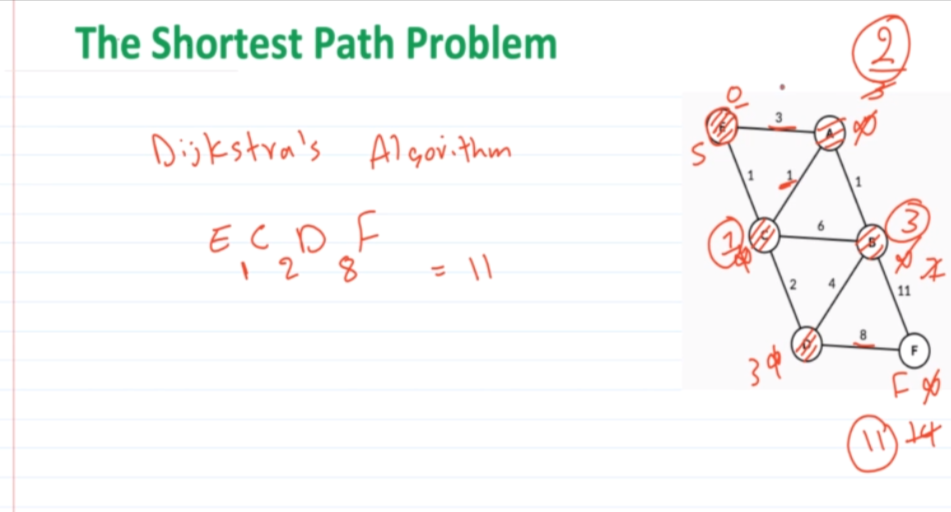 The Shortest Path Problem
Dijkstra's Algorithm
E C D F
1 2 8 = 11
2
3
0
3
E
A
∞
S
1
1
1
1
∞
C
6
B
3
∞
7
2
4
11
3
∞
D
8
F
F
∞
11
14